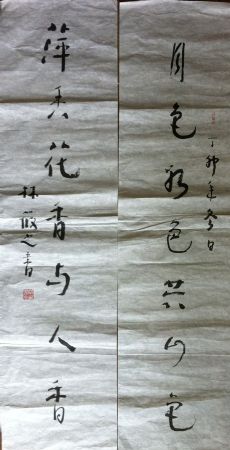 月色色共山色
丁卯年冬日
萍香花香与人香
林筱之书